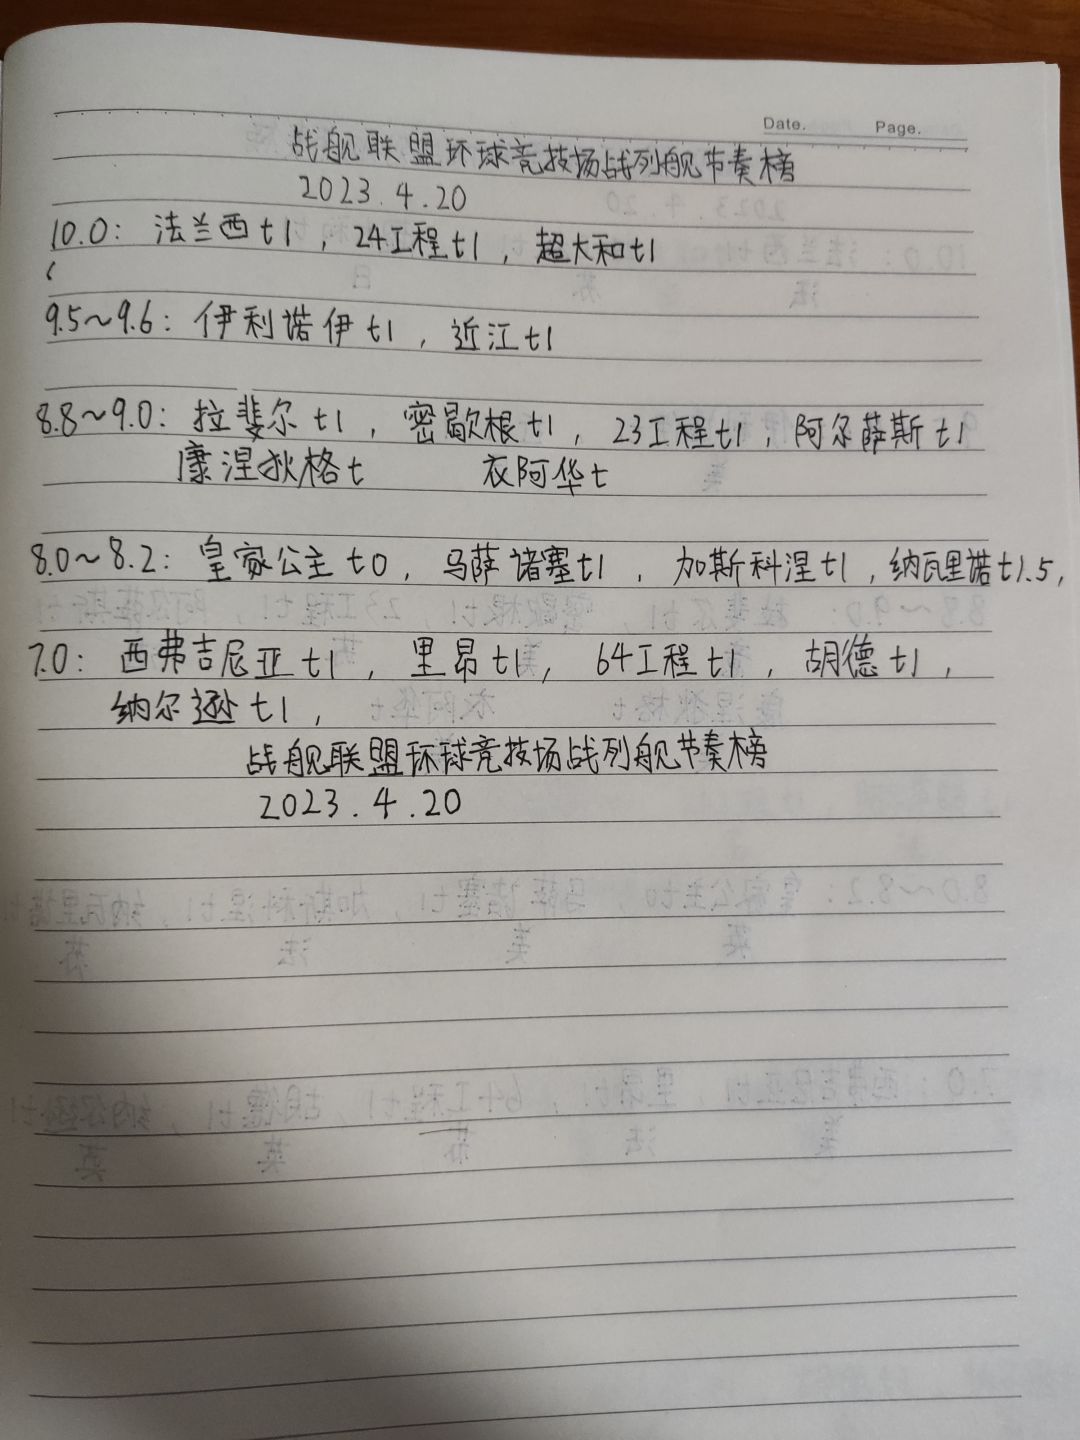 Date. Page.
战舰联盟环球竞技场战列舰节奏榜
2023.4.20
10.0：法兰西t1，24工程t1，超大和t1
9.5～9.6：伊利诺伊t1，近江t1
8.8～9.0：拉斐尔t1，密歇根t1，23工程t1，阿尔萨斯t1
康涅狄格t 衣阿华t
8.0～8.2：皇家公主t0，马萨诸塞t1，加斯科涅t1，纳瓦里诺t1.5，
7.0：西弗吉尼亚t1，里昂t1，64工程t1，胡德t1，
纳尔逊t1，
战舰联盟环球竞技场战列舰节奏榜
2023.4.20